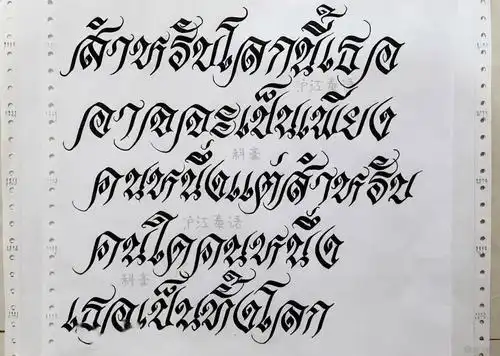 สำหรับโลกนี้เธอ
อาจจะเป็นเพียง
คนหนึ่งแต่สำหรับ
คนใดคนหนึ่ง
เธอเป็นทั้งโลก
沪江泰语
科普
沪江泰语